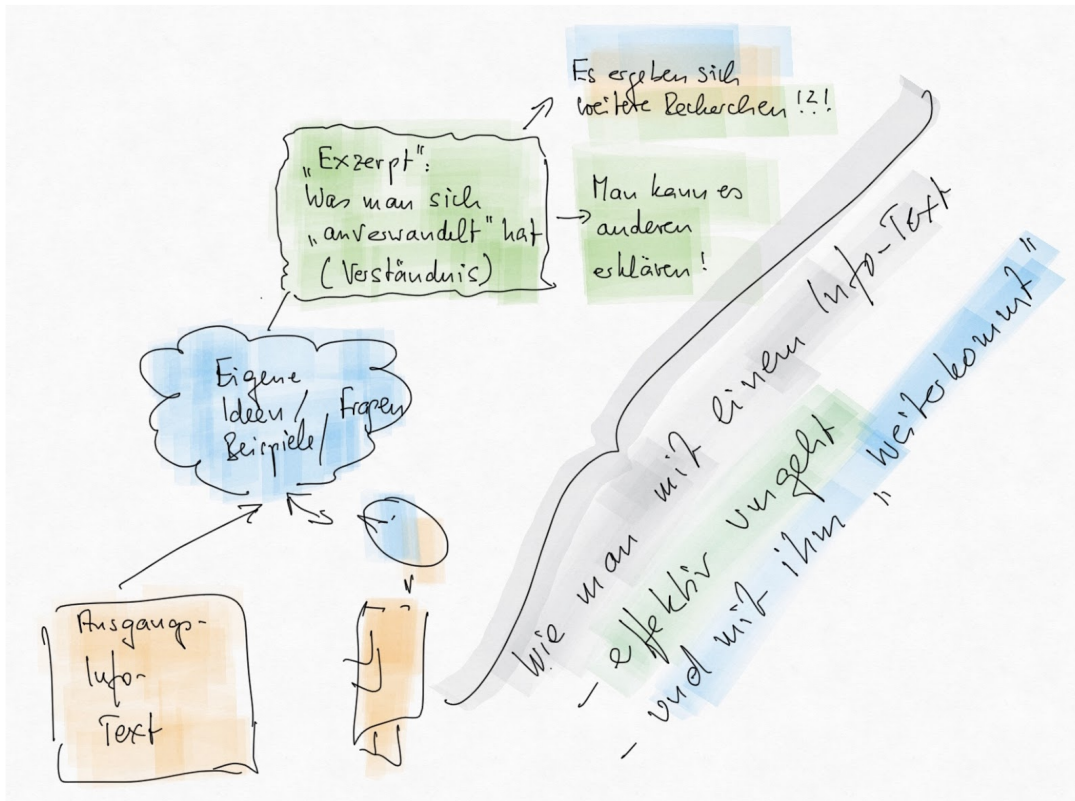 Es ergeben sich
weitere Recherchen !?!
„Exzerpt":
Was man sich
„anverwandelt" hat
(Verständnis)
Man kann es
anderen
erklären!
Eigene
Ideen/
Beispiele/
Fragen
Ausgangs-
Info-
Text
Wie man mit einem Info-Text
- effektiv umgeht
- und mit ihm „weiterkommt"